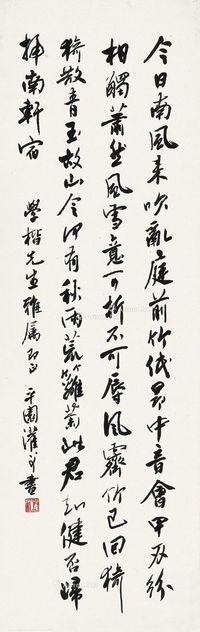 今日南風來吹亂庭前竹低昂中音會甲刃紛
相觸蕭然風雪意可折不可辱風霽竹已回猗
猗散青玉故山今何有秋雨荒籬菊此君知健否歸
掃南軒宿 學楷先生雅屬即正 平園灌 書